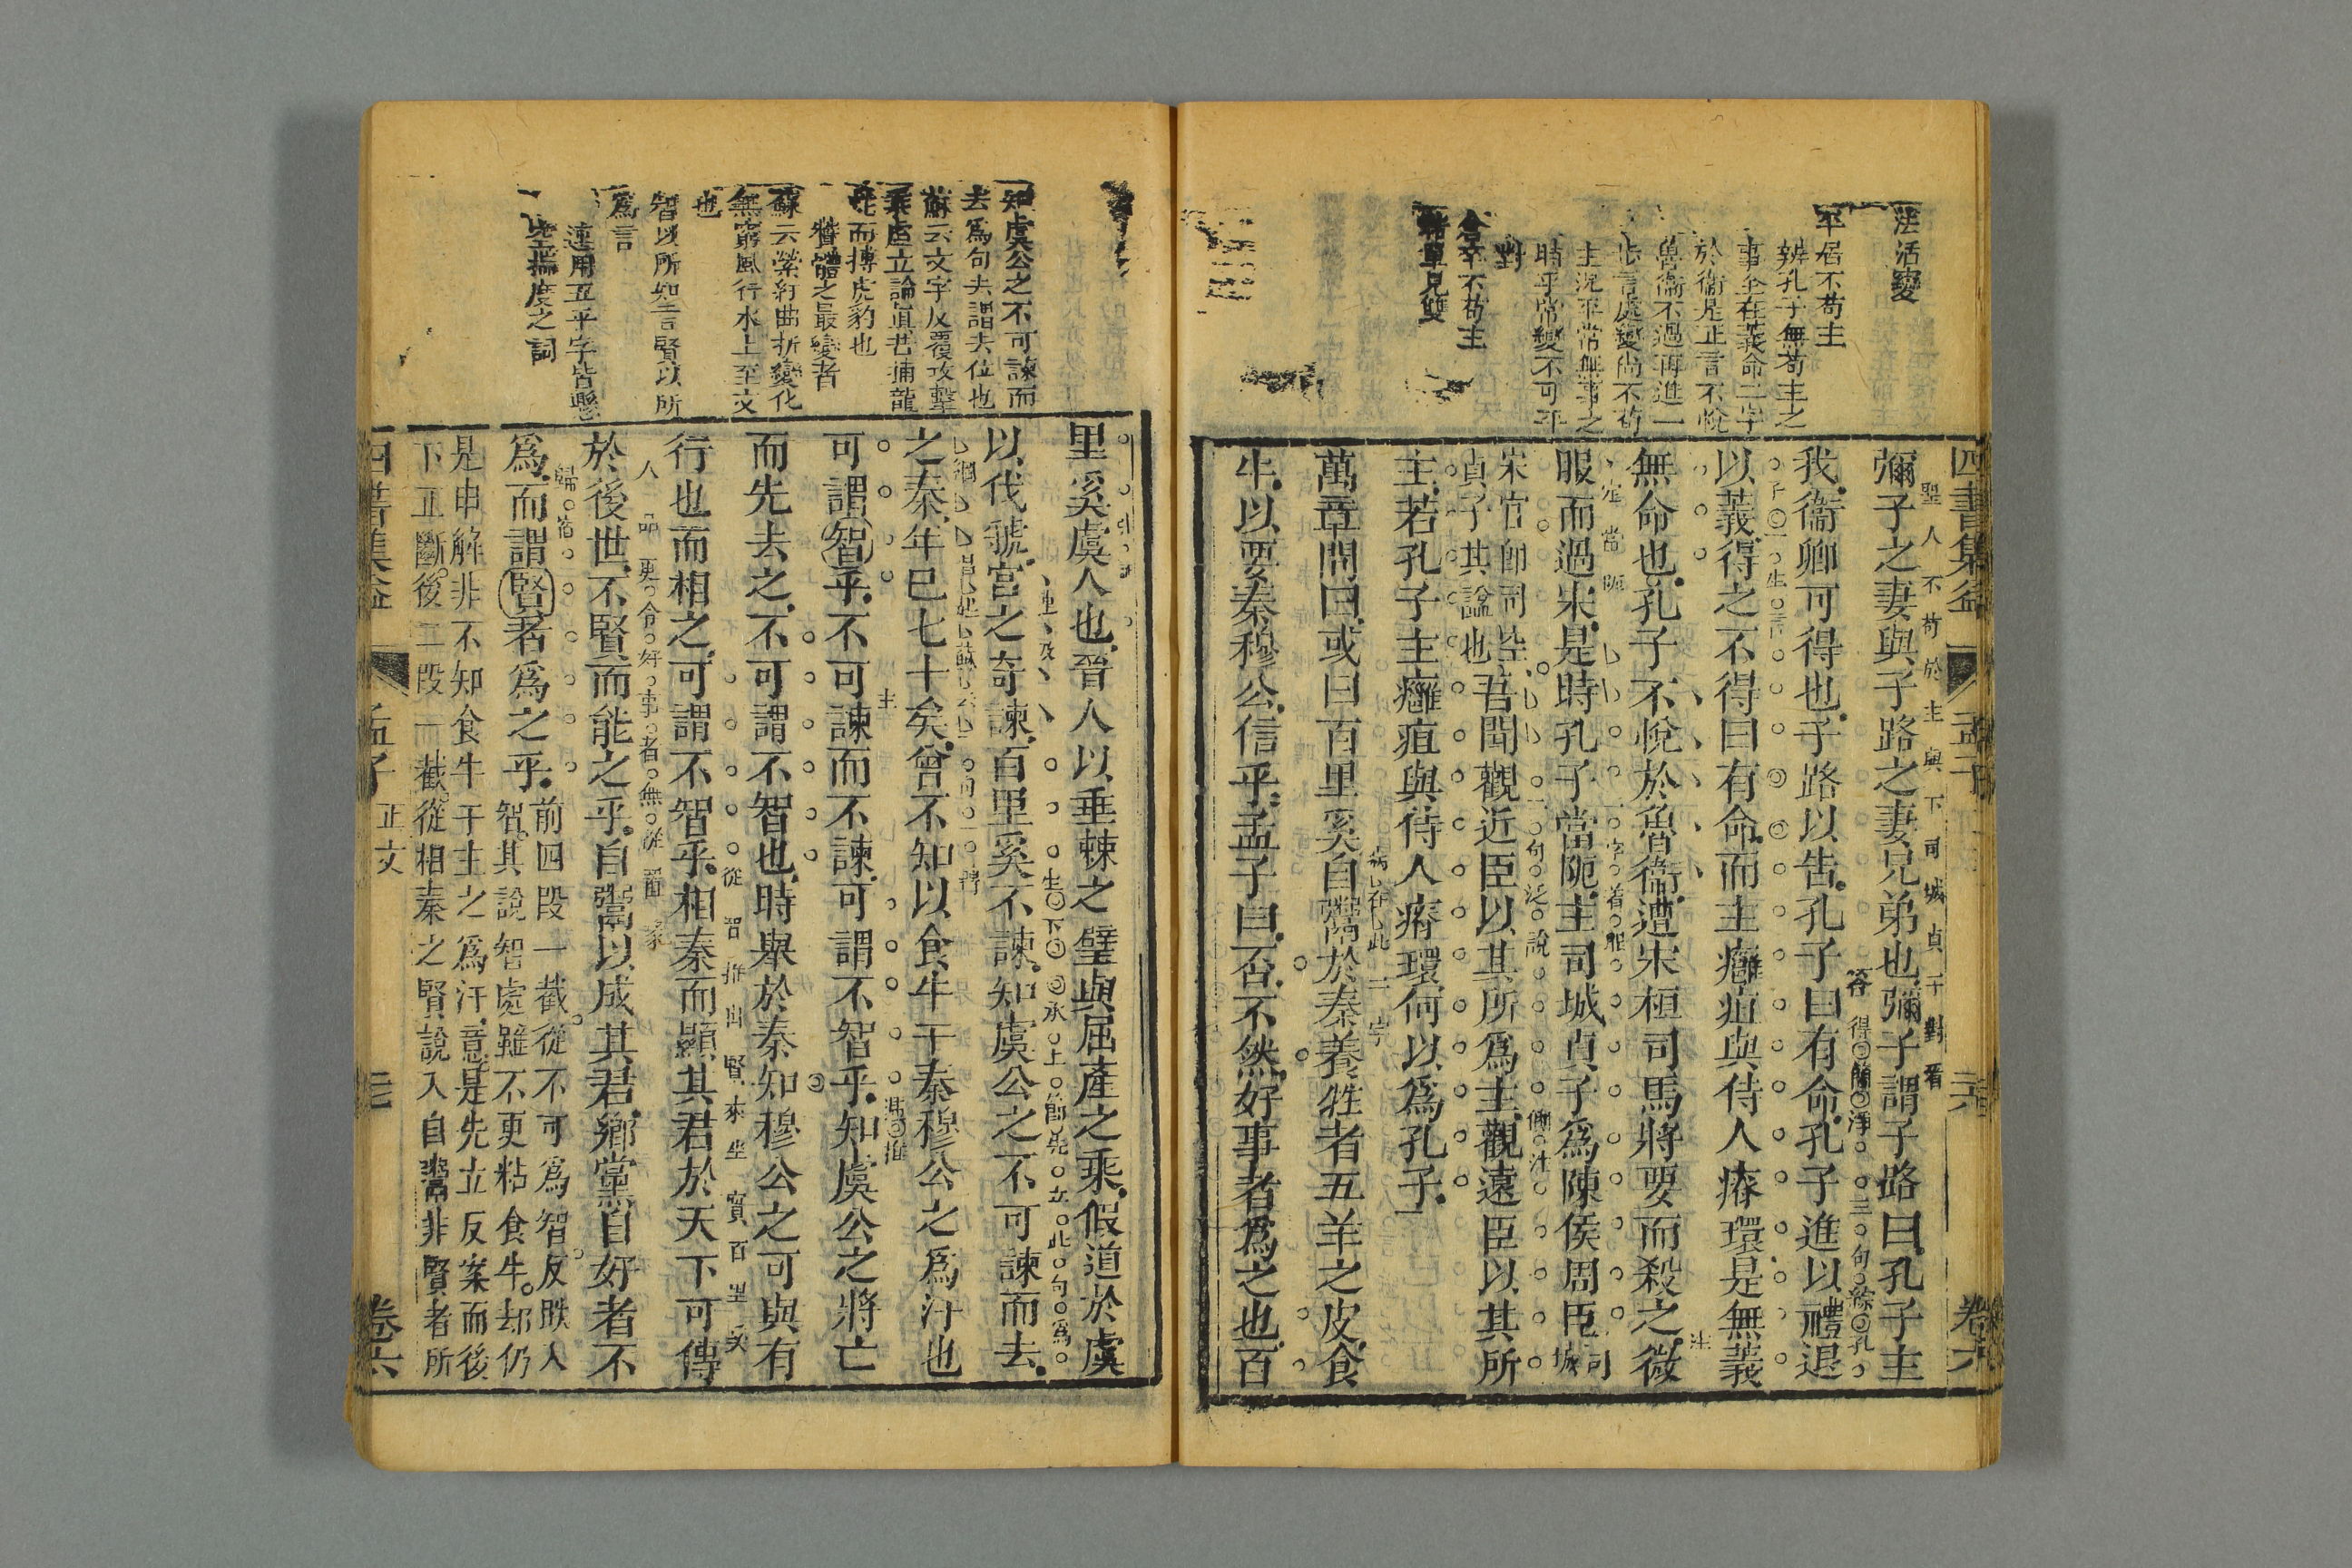 四書集益
孟子
卷六
法活變
平居不苟主
辨孔子無苟主之
事全在義命二字
於衞是正言不悅
魯衞不過再進一
步言處變尚不苟
主況平常無事之
時乎常變不可平
對
合章不苟主
聖人不苟於主與下司城貞子對看
彌子之妻與子路之妻兄弟也彌子謂子路曰孔子主
我衞卿可得也子路以告孔子曰有命孔子進以禮退
以義得之不得曰有命而主癰疽與侍人瘠環是無義
無命也孔子不悅於魯衞遭宋桓司馬將要而殺之微
服而過宋是時孔子當阨主司城貞子爲陳侯周臣司城
貞子其諡也吾聞觀近臣以其所爲主觀遠臣以其所
主若孔子主癰疽與侍人瘠環何以爲孔子
萬章問曰或曰百里奚自鬻於秦養牲者五羊之皮食
牛以要秦穆公信乎孟子曰否不然好事者爲之也百
知虞公之不可諫而
去爲句去謂去位也
蘇云文字反覆攻擊
乘虛立論眞若捕龍
蛇而搏虎豹也
體之最變者
蘇云縈紆曲折變化
無窮風行水上至文
也
智以所知言賢以所
爲言
連用五乎字皆懸
空揣度之詞
里奚虞人也晉人以垂棘之璧與屈產之乘假道於虞
以伐虢宮之奇諫百里奚不諫知虞公之不可諫而去
之秦年已七十矣曾不知以食牛干秦穆公之爲汙也
可謂智乎不可諫而不諫可謂不智乎知虞公之將亡
而先去之不可謂不智也時舉於秦知穆公之可與有
從智推出賢來坐實百里奚
行也而相之可謂不智乎相秦而顯其君於天下可傳
於後世不賢而能之乎自鬻以成其君鄉黨自好者不
爲而謂賢者爲之乎前四段一截從不可爲智反跌入
智其說智處雖不更粘食牛却仍
是申解非不知食牛干主之爲汙意是先立反案而後
下正斷後二段一截從相秦之賢說入自鬻非賢者所
四書集益
孟子
正文
卷六